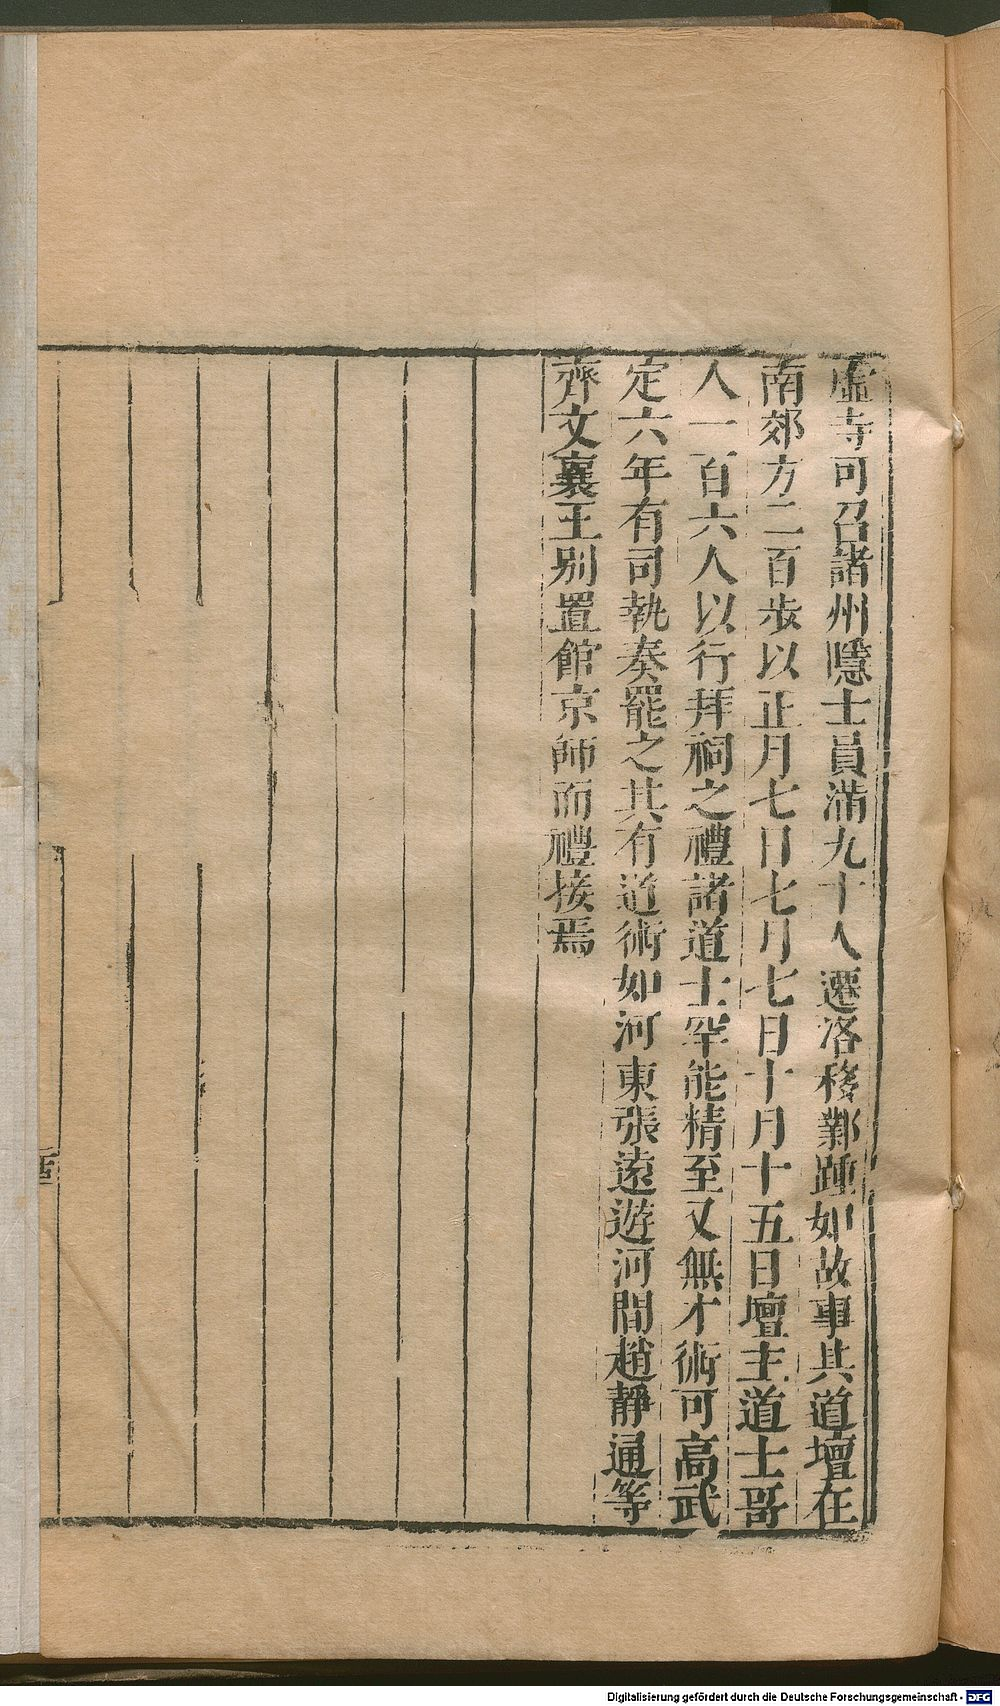 虛寺可召諸州隱士員滿九十人遷洛移鄴踵如故事其道壇在
南郊方二百步以正月七日七月七日十月十五日壇主道士哥
人一百六人以行拜祠之禮諸道士罕能精至又無才術可高武
定六年有司執奏罷之其有道術如河東張遠遊河間趙靜通等
齊文襄王別置館京師而禮接焉
Digitalisierung gefördert durch die Deutsche Forschungsgemeinschaft - DFG